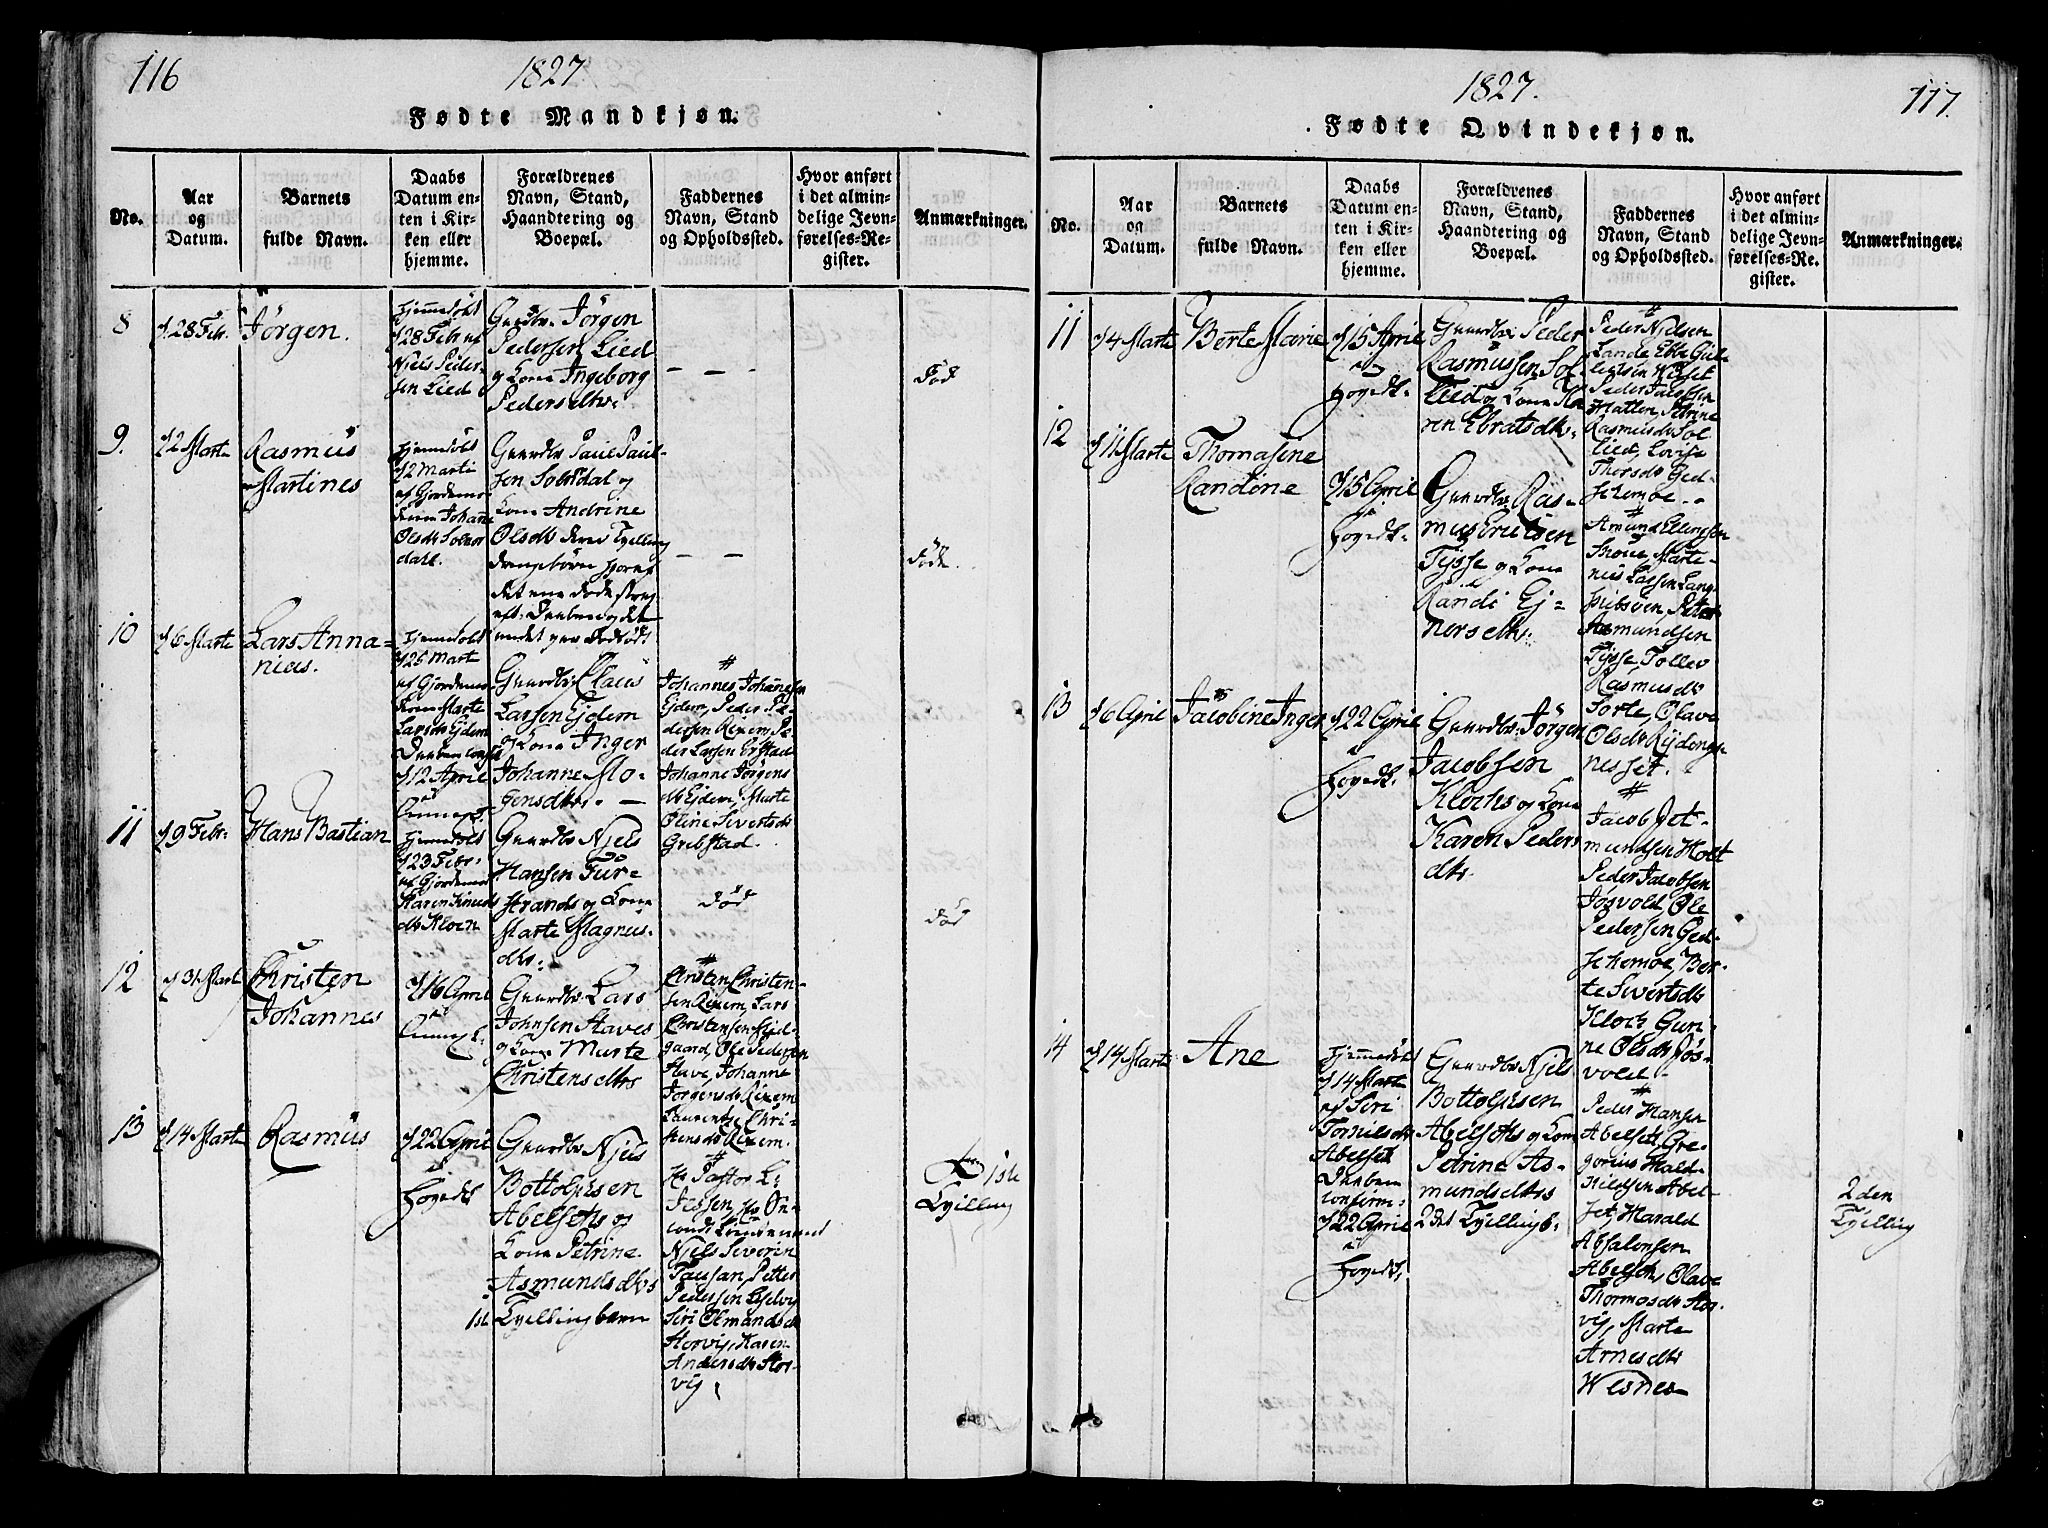 116
1827
Fødte Mandkjøn.
No.
Aar
og
Datum.
Barnets
fulde Navn.
Daabs
Datum en-
ten i Kir-
ken eller
hjemme.
Forældrenes
Navn, Stand,
Haandtering og
Boepæl.
Faddernes
Navn, Stand
og Opholdssted.
Hvor anført
i det almin-
delige Jevn-
førelses-Re-
gister.
Anmærkninger.
8
28 Febr.
Jörgen.
Hjemmedöbt
28 Febr af
Niels Peder-
sen Lied
Gaardbr. Jörgen
Pedersen Lied
og Kone Ingeborg
Pedersdtr:
Död
9.
2 Marte
Rasmus
Martines
Hjemmedöbt
2 Marti
af Gjordemo-
Johanne
Olsdtr
dahl.
Gaardbr Paul Paul-
sen
Kone Andrine
Olsdtr
Döde.
10
6 Marte
Lars Anna-
nias.
Hjemmedöbt
25 Mart
af Gjordemo-
Marte
Larsdtr Ejdem
Daaben
12 April
Gaardbr Claus
Larsen Ejdem
og Kone Inger
Johanne Mo-
gensdtr. —
Johannes Johannesen
Ejdem, Peder Pe-
dersen Rixem, Pe-
der Larsen Erstad
Johanne Jörgens
dtr Ejdem, Marte
Oline Sivertsdtr
Grebstad.
11
9 Febr.
Hans Bastian
Hjemmedöbt
23 Febr.
af Gjordemo
Karen Knuds
dtr Kloen
Gaardbr Njels
Hansen Fur-
strands og Kone
Marte Magnus-
dtr.
död
Död
12
31 Mart
Christen
Johannes
16 April
Gaardbr Lars
Johnsen Staves
og Kone Marte
Christensdtrs
Christen Christen-
sen Rixem, Lars
Christensen Mid-
gaard, Ole Pedersen
Stave, Johanne
Jörgensdtr Rixem
Laurentse Chri-
stensdtr Rixem.
13
14 Marte
Rasmus
22 April
i
Hovedk
Gaardbr Njels
Bottolphsen
Abelseths og
Kone Petrine
Asmundsdtrs
1st Tvillingbarn
Hr Pastor L:
Jessen,
Njels Severin
Tausan, Petter
Pedersen
Siri Osmundsdtr
Storvig, Karen
Andersdtr Stor-
vig
1ste
Tvilling
1827.
117.
Fødte Qvindekjøn.
No.
Aar
og
Datum.
Barnets
fulde Navn.
Daabs
Datum en-
ten i Kir-
ken eller
hjemme.
Forældrenes
Navn, Stand,
Haandtering og
Boepæl.
Faddernes
Navn, Stand
og Opholdssted.
Hvor anført
i det almin-
delige Jevn-
førelses-Re-
gister.
Anmærkninger.
11
4 Marte
Berte Marie
15 April
i
Hovedk.
Gaardbr Peder
Rasmussen Sol-
lied og Kone Ka-
ren Ebratsdtr.
Peder Njelsen
Lande
Peder Jacobsen
Hatlen, Petrine
Rasmusdtr Sol
lied, Lovise
Thorsdtr Ged-
12
11 Marte
Thomasine
Randine
15 April
i
Hovedk.
Gaardbr Ras-
mus Erichsen
Tysse og Kone
Randi Ej-
nersdtr:
Amund Ellingsen
Marte-
nus Larsen Lang-
Peter
Asmundsen
Tysse, Tollev
Rasmusdtr
Sorte, Olave
Olsdtr
nesset.
13
6 April
Jacobine Inger
22 April
i
Hovedk.
Gaardbr. Jörgen
Jacobsen
Klochs og Kone
Karen Peders
dtr.
Jacob Jet-
mundsen Holt
Peder Jacobsen
Jösvold, Ole
Pedersen Ged-
Ber-
te Sivertsdtr
Kloch Guri-
ne Olsdtr Jös-
vold
14
14 Marte
Ane
Hjemmedöbt
14 Marte
af Siri
Tornilsdtr
Abelset
Daaben
confirm:
22 April
i
Hovedk.
Gaardbr Njels
Bottolphsen
Abelseths og Kone
Petrine As-
mundsdtrs
2det Tvillingb.
Peder Hansen
Abelset, Gre-
gorius Hald-
Abel-
set, Harald
Absalonsen
Abelseth, Olave
Thormosdtr Stor-
vig, Marte
Arnesdtr
Wesnes
2den
Tvilling